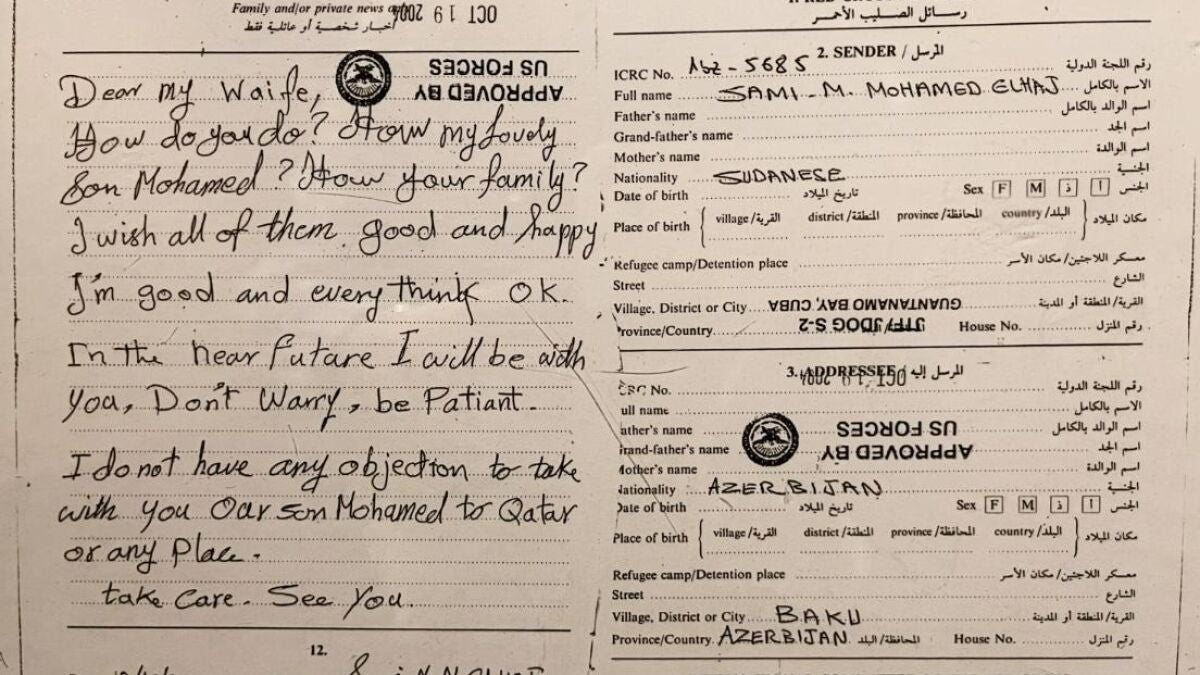 Family and/or private news only
أخبار شخصية أو عائلية فقط
OCT 19 2004
APPROVED BY
US FORCES
Dear my Waife,
How do you do? How my lovely
son Mohamed? How your family?
I wish all of them good and happy
I'm good and every think OK.
In the near futare I will be with
you, Don't Warry, be Patiant.
I do not have any objection to take
with you our son Mohamed to Qatar
or any Place.
take care. See You.
12.
رسائل الصليب الأحمر
2. SENDER / المرسل
ICRC No. Abz-5685 رقم اللجنة الدولية
Full name SAMI-M. MOHAMED ELHAJ الاسم بالكامل
Father's name اسم الوالد بالكامل
Grand-father's name اسم الجد
Mother's name اسم الوالدة
Nationality SUDANESE الجنسية
Date of birth تاريخ الميلاد Sex F M أ ذ الجنس
Place of birth village/القرية district/المنطقة province/المحافظة country/البلد مكان الميلاد
Refugee camp/Detention place معسكر اللاجئين/مكان الأسر
Street الشارع
Village, District or City GUANTANAMO BAY, CUBA القرية/المنطقة أو المدينة
rovince/Country JTF/JDOG S-2 House No. رقم المنزل
3. ADDRESSEE / المرسل إليه
OCT 19 2004
CRC No. رقم اللجنة الدولية
ull name الاسم بالكامل
ather's name اسم الوالد بالكامل
rand-father's name اسم الجد
APPROVED BY
US FORCES
Mother's name اسم الوالدة
Nationality AZERBIJAN الجنسية
Date of birth تاريخ الميلاد Sex F M أ ذ الجنس
Place of birth village/القرية district/المنطقة province/المحافظة country/البلد مكان الميلاد
Refugee camp/Detention place معسكر اللاجئين/مكان الأسر
Street الشارع
Village, District or City BAKU القرية/المنطقة أو المدينة
Province/Country AZERBIJAN المحافظة/البلد House No. رقم المنزل